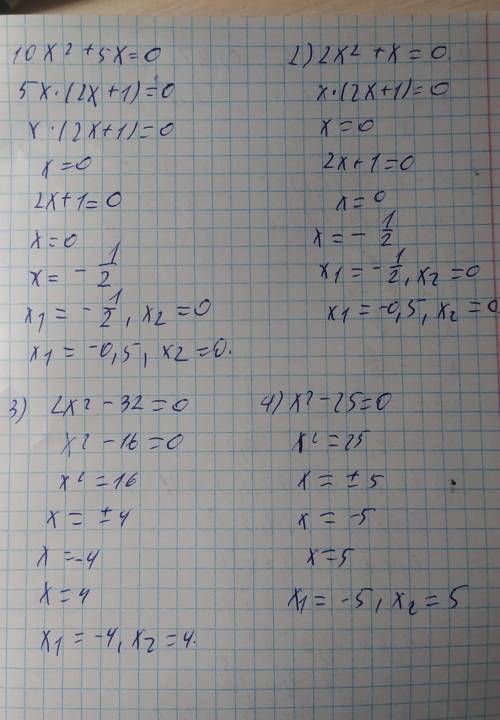 10x² + 5x = 0
5x · (2x + 1) = 0
x · (2x + 1) = 0
x = 0
2x + 1 = 0
x = 0
x = - 1/2
x₁ = - 1/2, x₂ = 0
x₁ = -0,5, x₂ = 0.
2) 2x² + x = 0.
x · (2x + 1) = 0
x = 0
2x + 1 = 0
x = 0
x = - 1/2
x₁ = - 1/2, x₂ = 0
x₁ = -0,5, x₂ = 0
3) 2x² - 32 = 0
x² - 16 = 0
x² = 16
x = ± 4
x = -4
x = 4
x₁ = -4, x₂ = 4.
4) x² - 25 = 0
x² = 25
x = ± 5
x = -5
x = 5
x₁ = -5, x₂ = 5